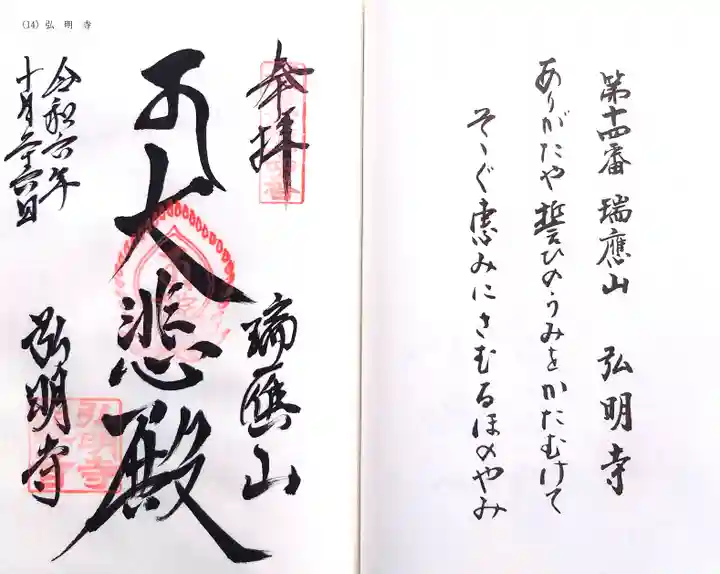 第十四番 瑞應山 弘明寺
ありがたや誓ひのうみをかたむけて
そゝぐ恵みにさむるほのやみ
(14) 弘明寺
奉拝
瑞應山
大悲殿
弘明寺
令和六年
十月二十六日
弘明寺